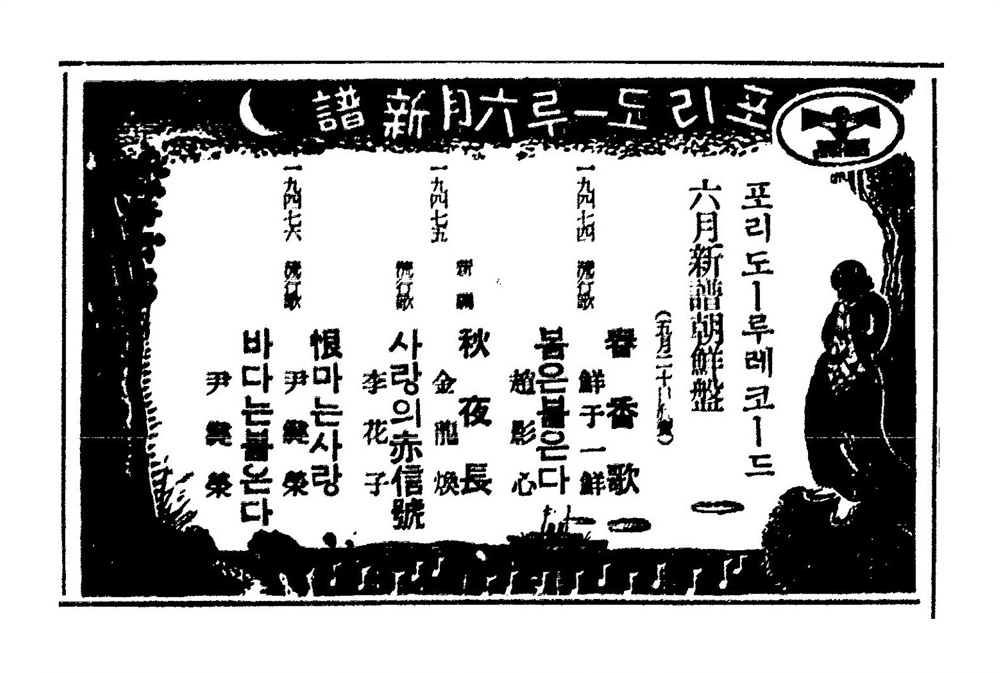 포리도ー루六月新譜
포리도ー루레코ー드
六月新譜朝鮮盤
(五月二十日發賣)
春香歌
鮮于一鮮
一九四七四 流行歌
봄은불은다
趙影心
新
秋夜長
金龍煥
一九四七五
流行歌
사랑의赤信號
李花子
恨마는사랑
尹鍵榮
一九四七六 流行歌
바다는불온다
尹鍵榮